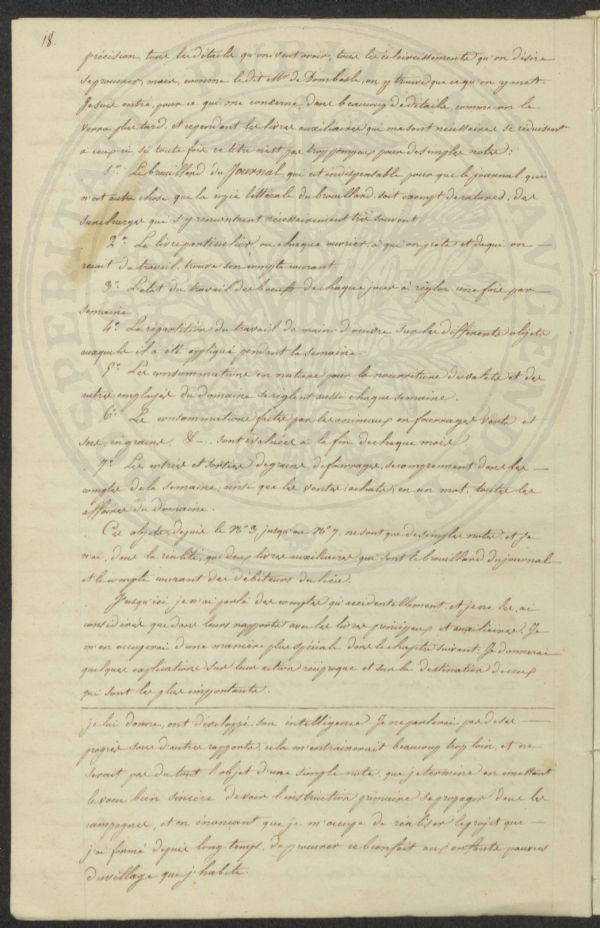 18.
précision, tous les détails qu'on veut avoir, tous les éclaircissements qu'on désire
se procurer, mais, comme le dit Mr de Dombasle, on y trouve que ce qu'on y met.
Je suis entré, pour ce qui me concerne, dans beaucoup de détails, comme on le
verra plus tard, et cependant les livres auxiliaires qui me sont nécessaires se réduisent
à ceux-ci, si toute fois ce titre n'est pas trop pompeux pour de simples notes:
1o Le brouillard du Journal, qui est indispensable pour que le journal, qui
n'est autre chose que la copie littérale du brouillard, soit exempt de ratures, de
surcharges qui s'y rencontrent nécessairement très souvent.
2o Le livre particulier, où chaque ouvrier, à qui on prête et de qui on
reçoit du travail, trouve son compte courant.
3o L'état du travail des bœufs de chaque jour à régler une fois par
semaine.
4o La répartition du travail de main-d'œuvre sur les différents objets
auxquels il a été appliqué pendant la semaine.
5o Les consommations en nature pour la nourriture de valets et des
autres employés du domaine se règlent aussi chaque semaine.
6o Les consommations faites par les animaux en fourrages verts et
secs, en grains, &.... sont évaluées à la fin de chaque mois.
7o Les entrées et sorties de grains, de fourrages, se comprennent dans les
comptes de la semaine, ainsi que les ventes, achats, en un mot, toutes les
affaires du domaine.
Ces objets, depuis le No 3 jusqu'au No 7, ne sont que de simples notes, et je
n'ai, dans la réalité, que deux livres auxiliaires qui sont le brouillard du journal
et le compte courant des débiteurs du
Jusqu'ici je n'ai parlé des comptes qu'accidentellement et je ne les ai
considérés que dans leurs rapports avec les livres principaux et auxiliaires. Je
m'en occuperai d'une manière plus spéciale dans le chapitre suivant. Je donnerai
quelques explications sur leur action réciproque et sur la destination de ceux
qui sont les plus importants.
je lui donne, ont développé son intelligence. Je ne parlerai pas de ses
progrès sous d'autres rapports, cela m'entraînerait beaucoup trop loin, et ne
serait pas du tout l'objet d'une simple note, que je termine en émettant
le vœu bien sincère de voir l'instruction primaire se propager dans les
campagnes, et en énonçant que je m'occupe de réaliser le projet que
j'ai formé depuis long-temps, de procurer ce bienfait aux enfants pauvres
du village que j'habite.